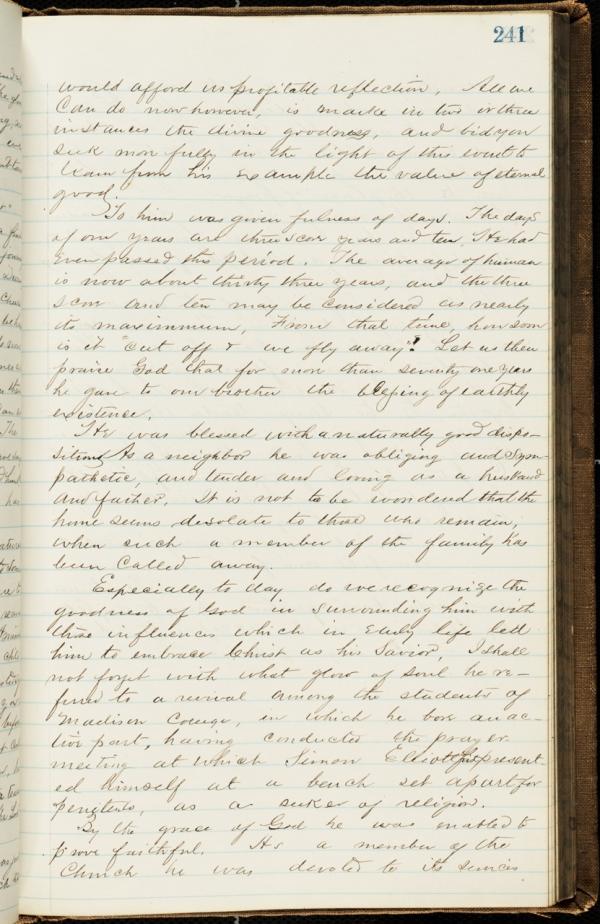 241
would afford us profitable reflection. All we
Can do now however, is marke in two or three
instances the divine goodness, and bid you
seek more fully in the light of this event to
learn from his example the value of eternal
good.
To him was given fulness of days. The days
of our years are three score years and ten. He had
even passed this period. The average of human
is now about thirty three years, and the three
score and ten may be considered as nearly
its maximmum, From that time, how soon
is it "cut off & we fly away"! Let us then
praise God that for more than seventy one years
he gave to our brother the blessing of earthly
existence.
He was blessed with a naturally good dispo-
sition, As a neighbor he was obliging and sym-
pathetic, and tender and loving as a husband
and father. It is not to be wondered that the
home seems desolate to those who remain,
when such a member of the family has
been called away.
Especially to day do we recognize the
goodness of God in surrounding him with
those influences which in early life led
him to embrace Christ as his Savior, I shall
not forget with what glow of soul he re-
ferred to a revival among the students of
Madison College, in which he bore an ac-
tive part, having conducted the prayer
meeting at which Simon Elliott present
ed himself at a bench set apart for
penitents, as a seeker of religion.
By the grace of God he was enabled to
prove faithful. As a member of the
Church he was devoted to its services